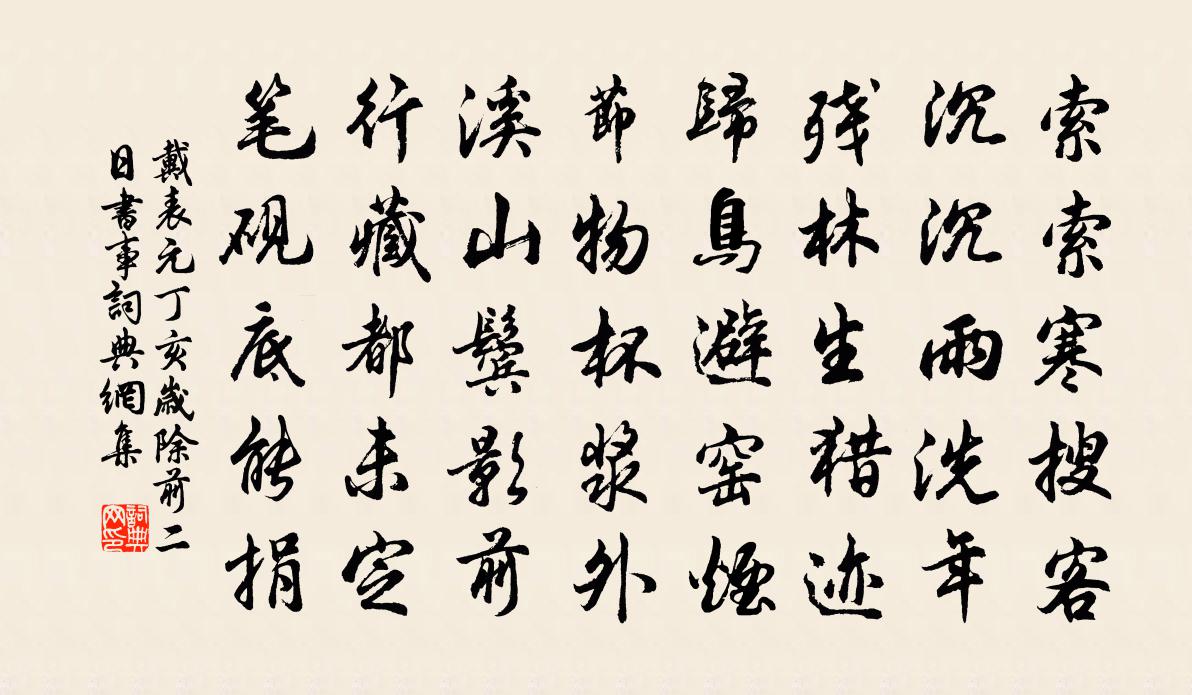 索索寒搜客
沉沉雨洗年
残林生猎迹
歸鳥避窑煙
節物杯漿外
溪山鬓影前
行藏都未定
笔砚底能捐
戴表元丁亥歲除前二
日書事詞典網集
詞典网印